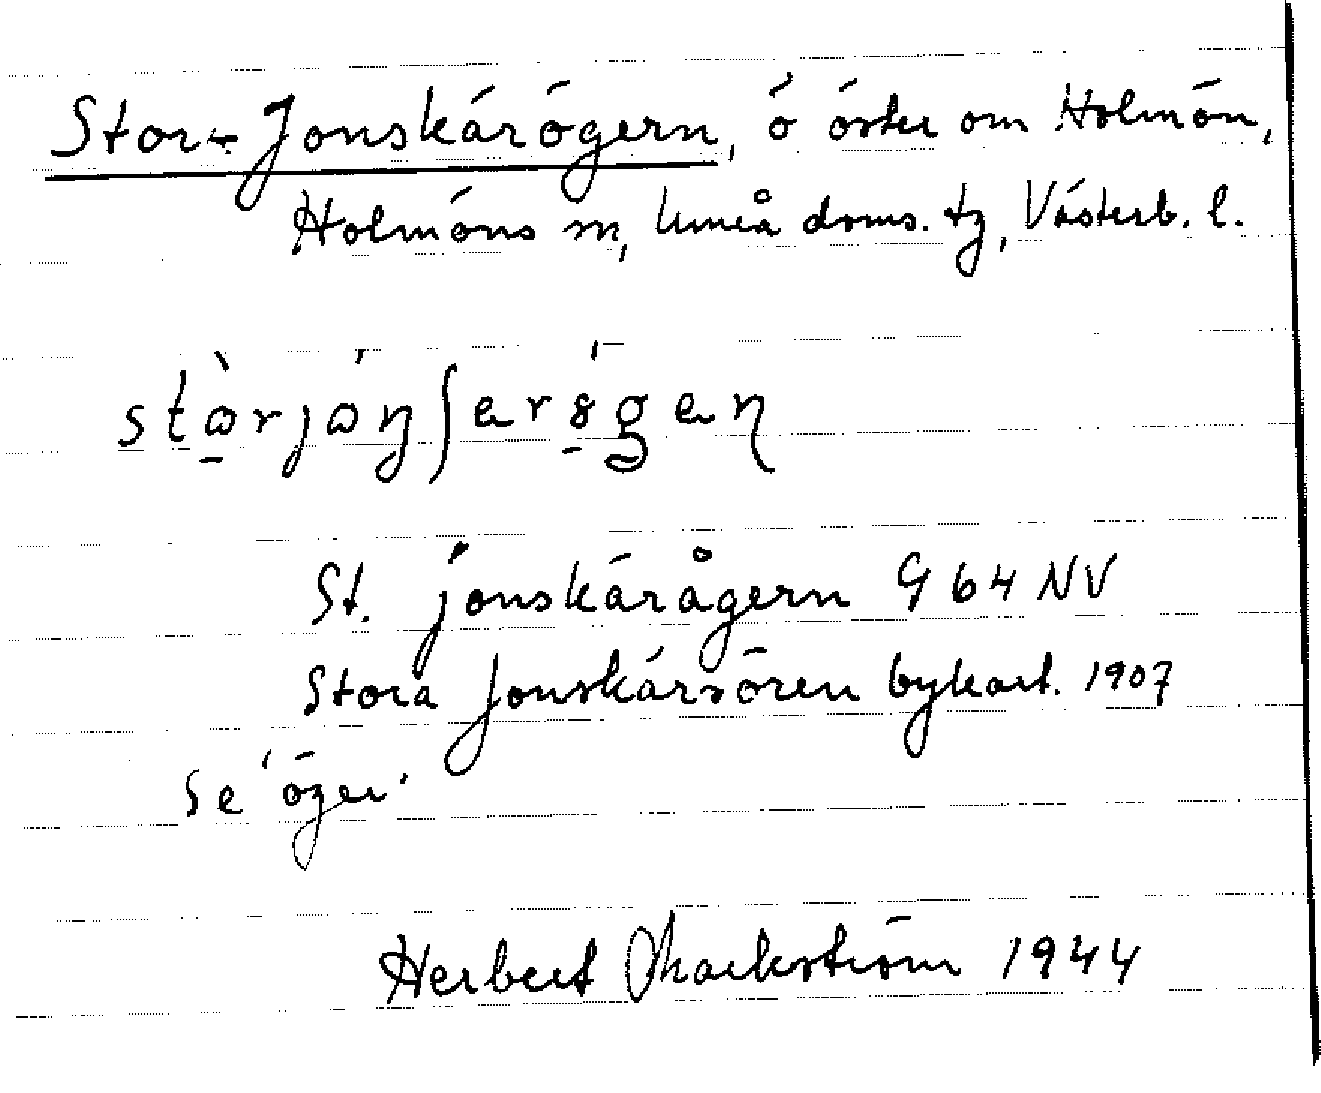 Stora Jonskärögern, ö öster om Holmön,
Holmöns sn, Umeå doms. tg, Västerb. l.
St. Jonskärågern G 64 NV
Stora Jonskärsören bykart. 1907
Se 'öger'
Herbert Markström 1944